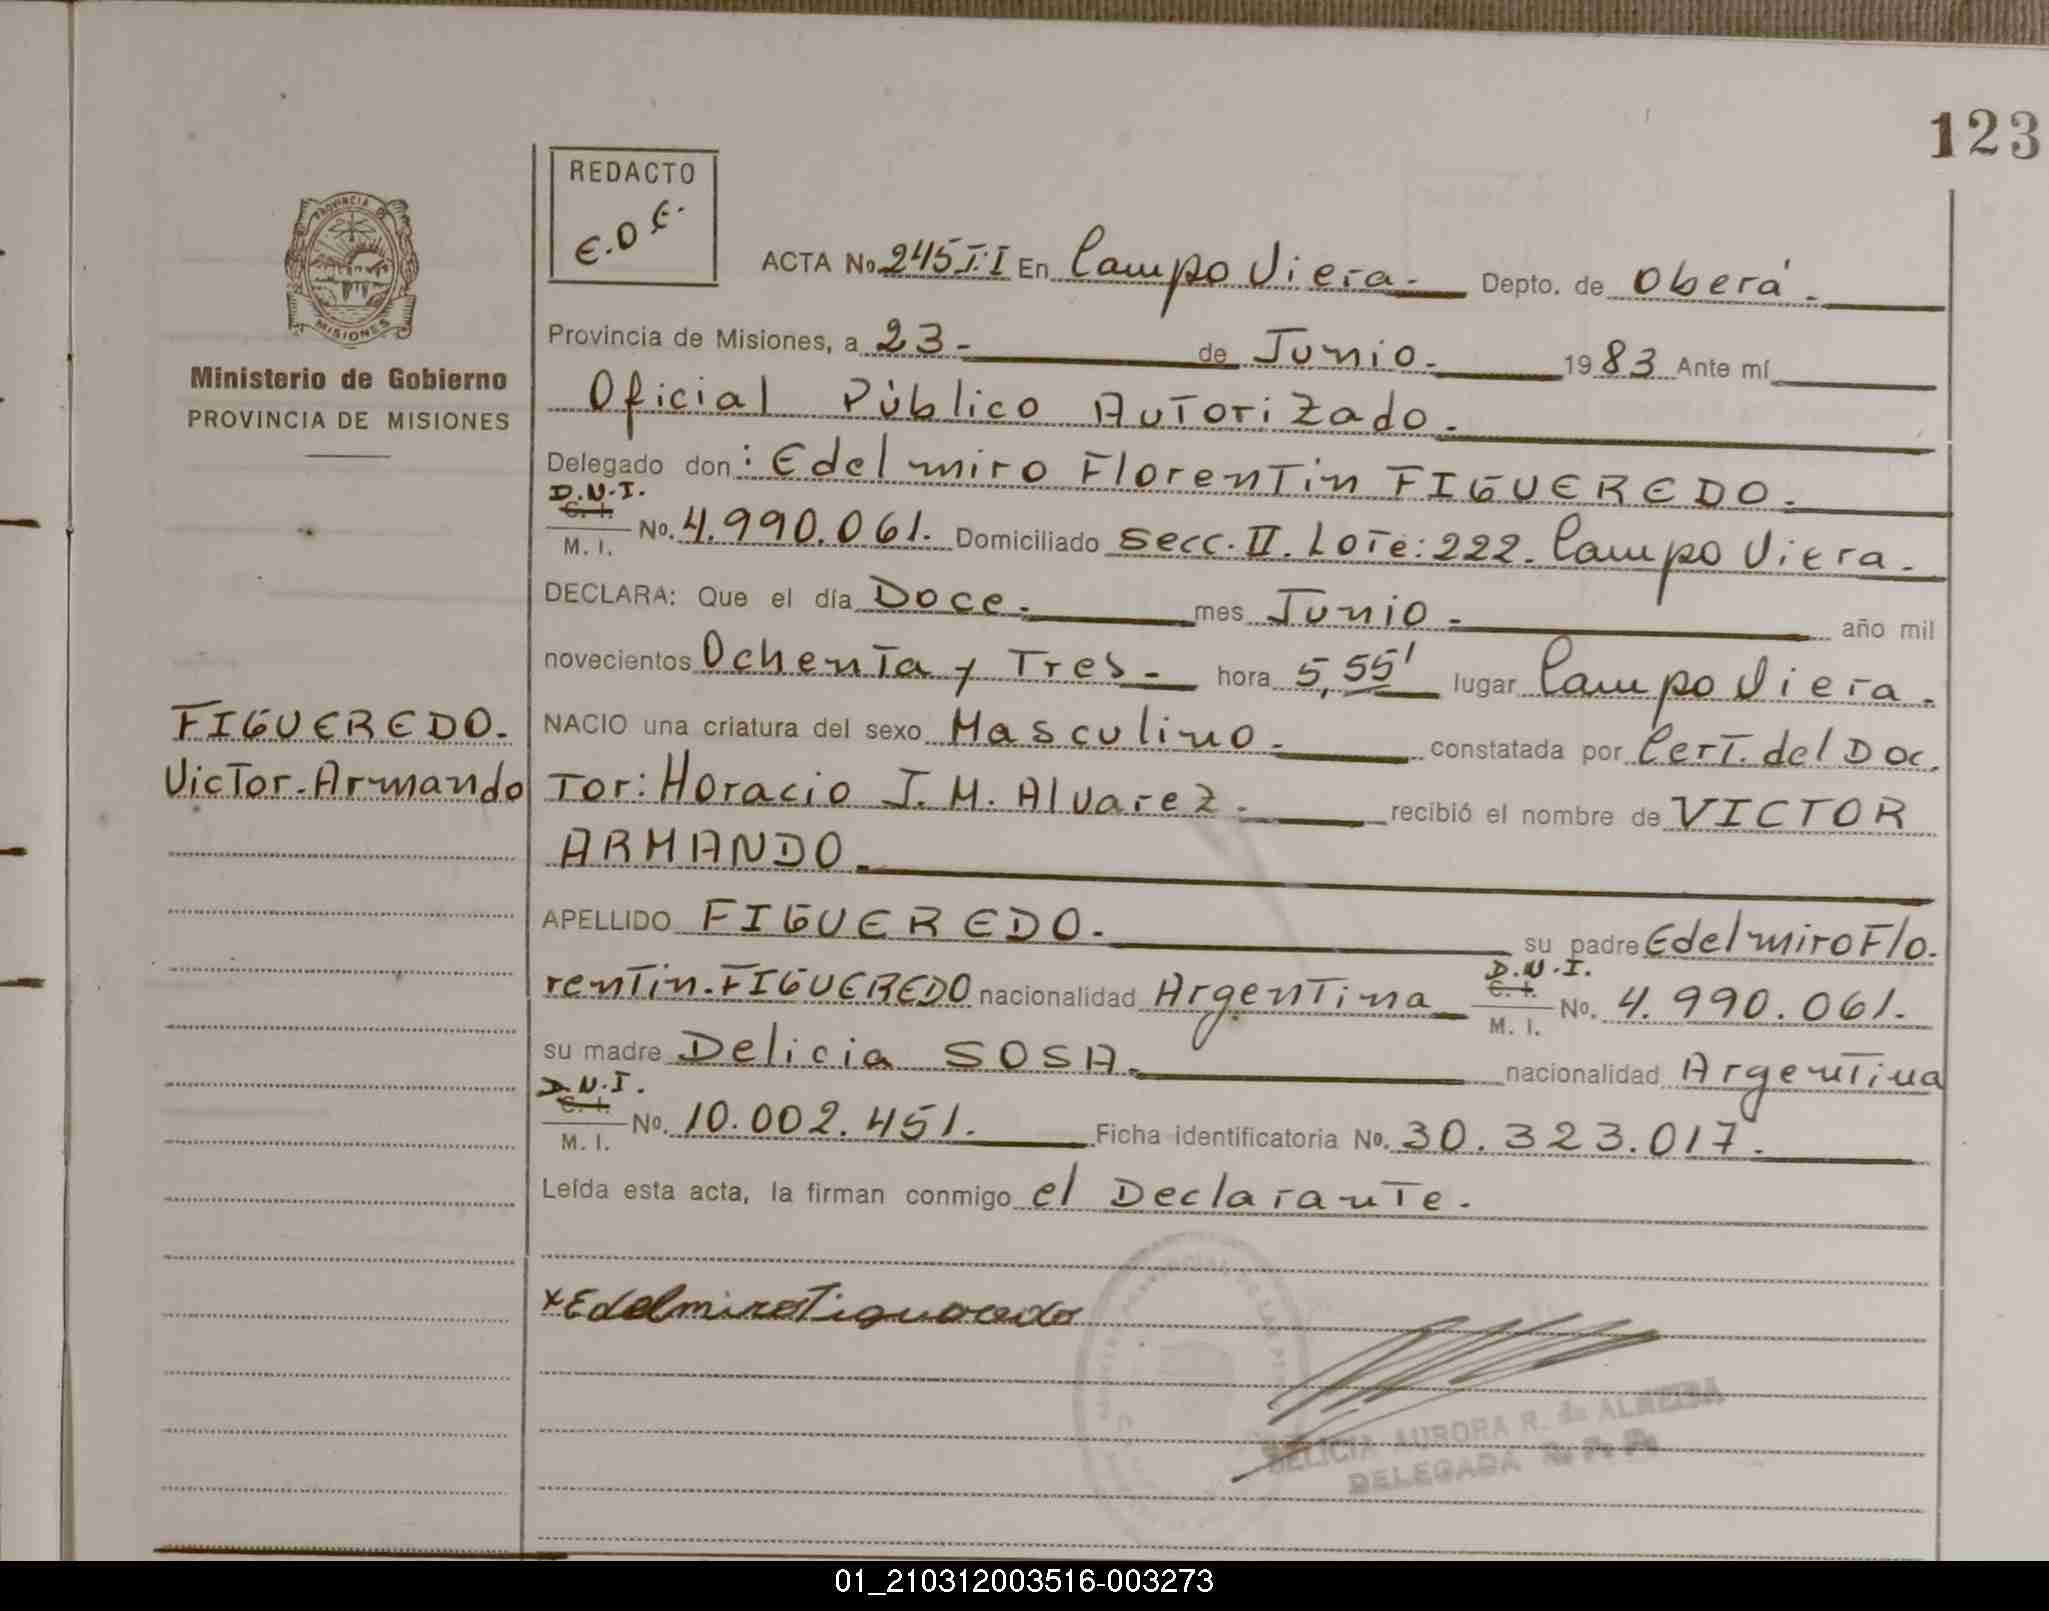 123
REDACTO
E.D.E.
PROVINCIA DE
MISIONES
Ministerio de Gobierno
PROVINCIA DE MISIONES
ACTA No 245 T:I En Campo Viera.- Depto. de Oberá.-
Provincia de Misiones, a 23.- de Junio.- 1983 Ante mí
Oficial Público Autorizado.-
Delegado don: Edelmiro Florentin FIGUEREDO.-
D.N.I.
C. I.
M. I. No. 4.990.061. Domiciliado Secc. II. Lote: 222. Campo Viera.-
DECLARA: Que el día Doce.- mes Junio.- año mil
novecientos Ochenta y Tres.- hora 5,55' lugar Campo Viera.-
FIGUEREDO.
Victor.Armando
NACIO una criatura del sexo Masculino.- constatada por Cert. del Doc.
Tor: Horacio J. M. Alvarez.- recibió el nombre de VICTOR
ARMANDO.-
APELLIDO FIGUEREDO.- su padre Edelmiro Flo.
rentin.FIGUEREDO nacionalidad Argentina D.N.I. C. I. M. I. No. 4.990.061.-
su madre Delicia SOSA.- nacionalidad Argentina
D.N.I.
C. I.
M. I. No. 10.002.451.- Ficha identificatoria No. 30.323.017.-
Leída esta acta, la firman conmigo el Declarante.-
x Edelmiro Figueredo
DELICIA AURORA R. de ALMEIDA
DELEGADA R. P. P.
01_210312003516-003273